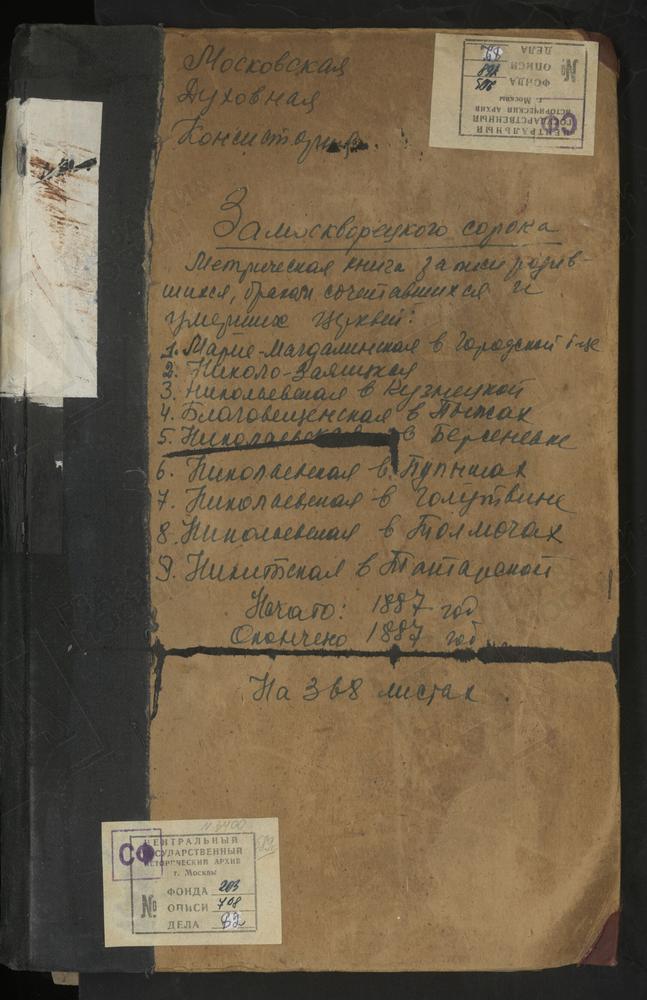 Московская
Духовная
Консистория.
Замоскворецкого сорока
Метрическая книга записи родив-
шихся, браком сочетавшихся и
умерших церквей:
1. Марие-Магдалинская в Городской б-це
2. Николо-Заяицкая
3. Николаевская в Кузнецкой
4. Благовещенская в Пыжах
5. Николаевская в Берсеневке
6. Николаевская в Пупышах
7. Николаевская в Голутвине
8. Николаевская в Толмачах
9. Никитская в Татарской
Начато: 1887 год
Окончено 1887 год
На 368 листах.
СФ
ЦЕНТРАЛЬНЫЙ
ГОСУДАРСТВЕННЫЙ
ИСТОРИЧЕСКИЙ АРХИВ
г. Москвы
ФОНДА 203
№ ОПИСИ
ДЕЛА
СФ
ЦЕНТРАЛЬНЫЙ
ГОСУДАРСТВЕННЫЙ
ИСТОРИЧЕСКИЙ АРХИВ
г. Москвы
ФОНДА 203
№ ОПИСИ 708
ДЕЛА 82